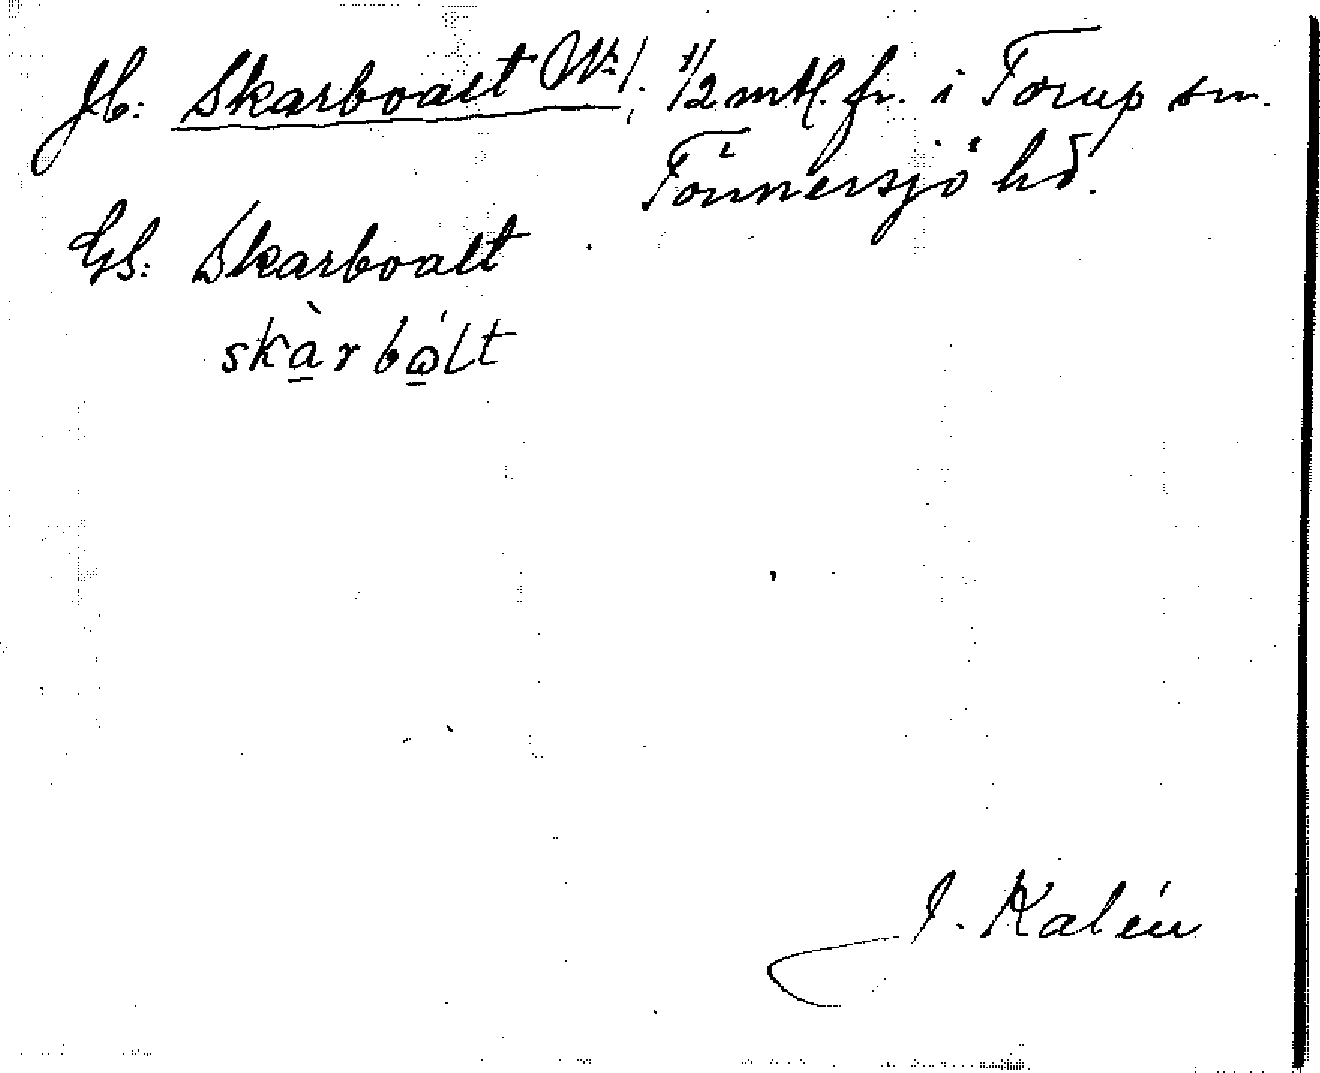 Jb: Skarboalt No 1; 1/2 mtl. fr. i Torup sn.
Tönnersjö hd.
GS: Skarboalt
skàrbó̱lt
J. Kalén